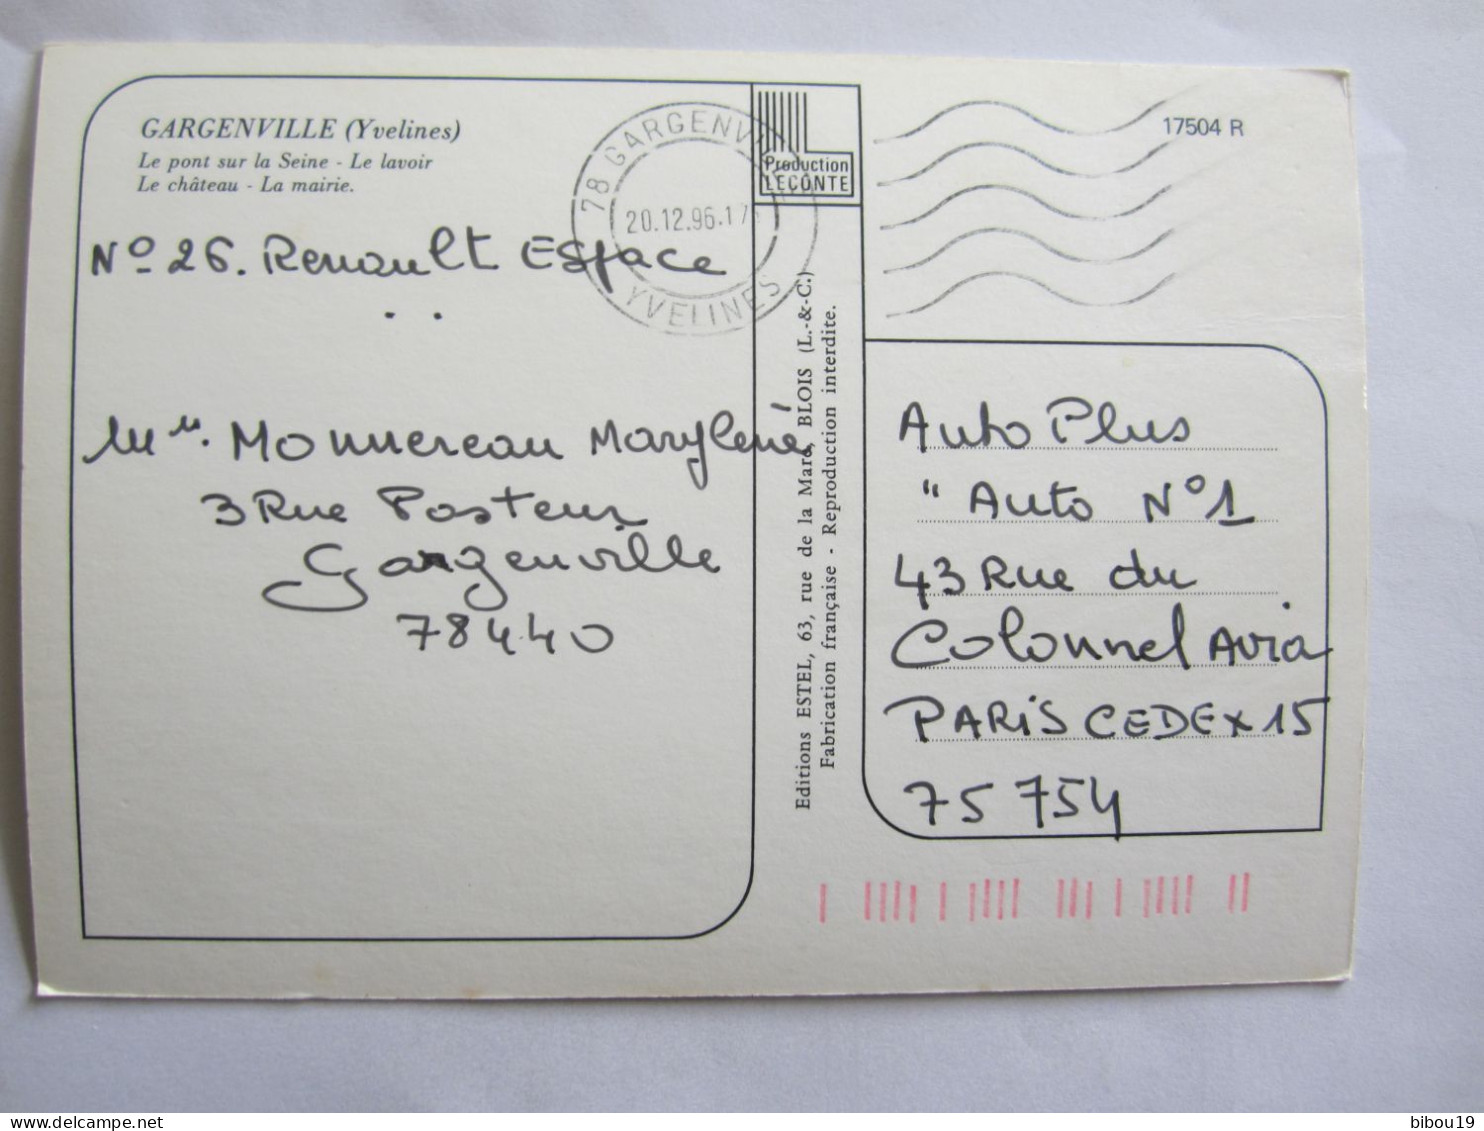 GARGENVILLE (Yvelines)
Le pont sur la Seine - Le lavoir
Le château - La mairie.
78 GARGENVILLE
20.12.96.17
YVELINES
Production
LECONTE
17504 R
N° 26. Renault Espace
Monnereau Marylene
3 Rue Pasteur
Gargenville
78440
Editions ESTEL, 63, rue de la Mare, BLOIS (L.-&-C.)
Fabrication française - Reproduction interdite.
Auto Plus
" Auto N° 1
43 Rue du
Colonnel Avia
PARIS CEDEX 15
75 754
bibou19